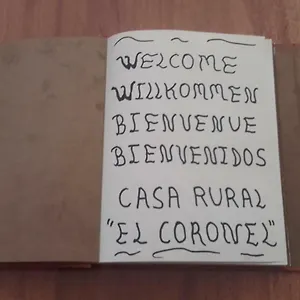 WELCOME
WILLKOMMEN
BIENVENUE
BIENVENIDOS
CASA RURAL
"EL CORONEL"